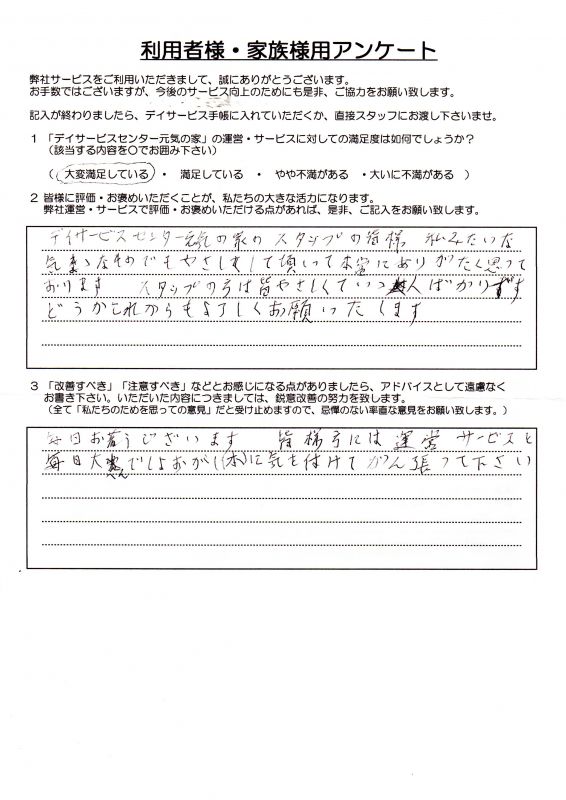 利用者様・家族様用アンケート
弊社サービスをご利用いただきまして、誠にありがとうございます。
お手数ではございますが、今後のサービス向上のためにも是非、ご協力をお願い致します。
記入が終わりましたら、デイサービス手帳に入れていただくか、直接スタッフにお渡し下さいませ。
1 「デイサービスセンター元気の家」の運営・サービスに対しての満足度は如何でしょうか？
（該当する内容を〇でお囲み下さい）
（ 大変満足している ・ 満足している ・ やや不満がある ・大いに不満がある ）
2 皆様に評価・お褒めいただくことが、私たちの大きな活力になります。
弊社運営・サービスで評価・お褒めいただける点があれば、是非、ご記入をお願い致します。
デイサービスセンター元気の家の スタッフの皆様 私みたいな
気ままなものでもやさしくして頂いて本当にありがたく思って
おります スタッフの方は皆やさしくていい人ばかりです
どうかこれからもよろしくお願いいたします
3 「改善すべき」「注意すべき」などとお感じになる点がありましたら、アドバイスとして遠慮なく
お書き下さい。いただいた内容につきましては、鋭意改善の努力を致します。
（全て「私たちのための思っての意見」だと受け止めますので、忌憚のない率直な意見をお願い致します。）
毎日お暑うございます 皆様方には 運営 サービスと
毎日大変でしょおが (水)に気を付けてがん張って下さい